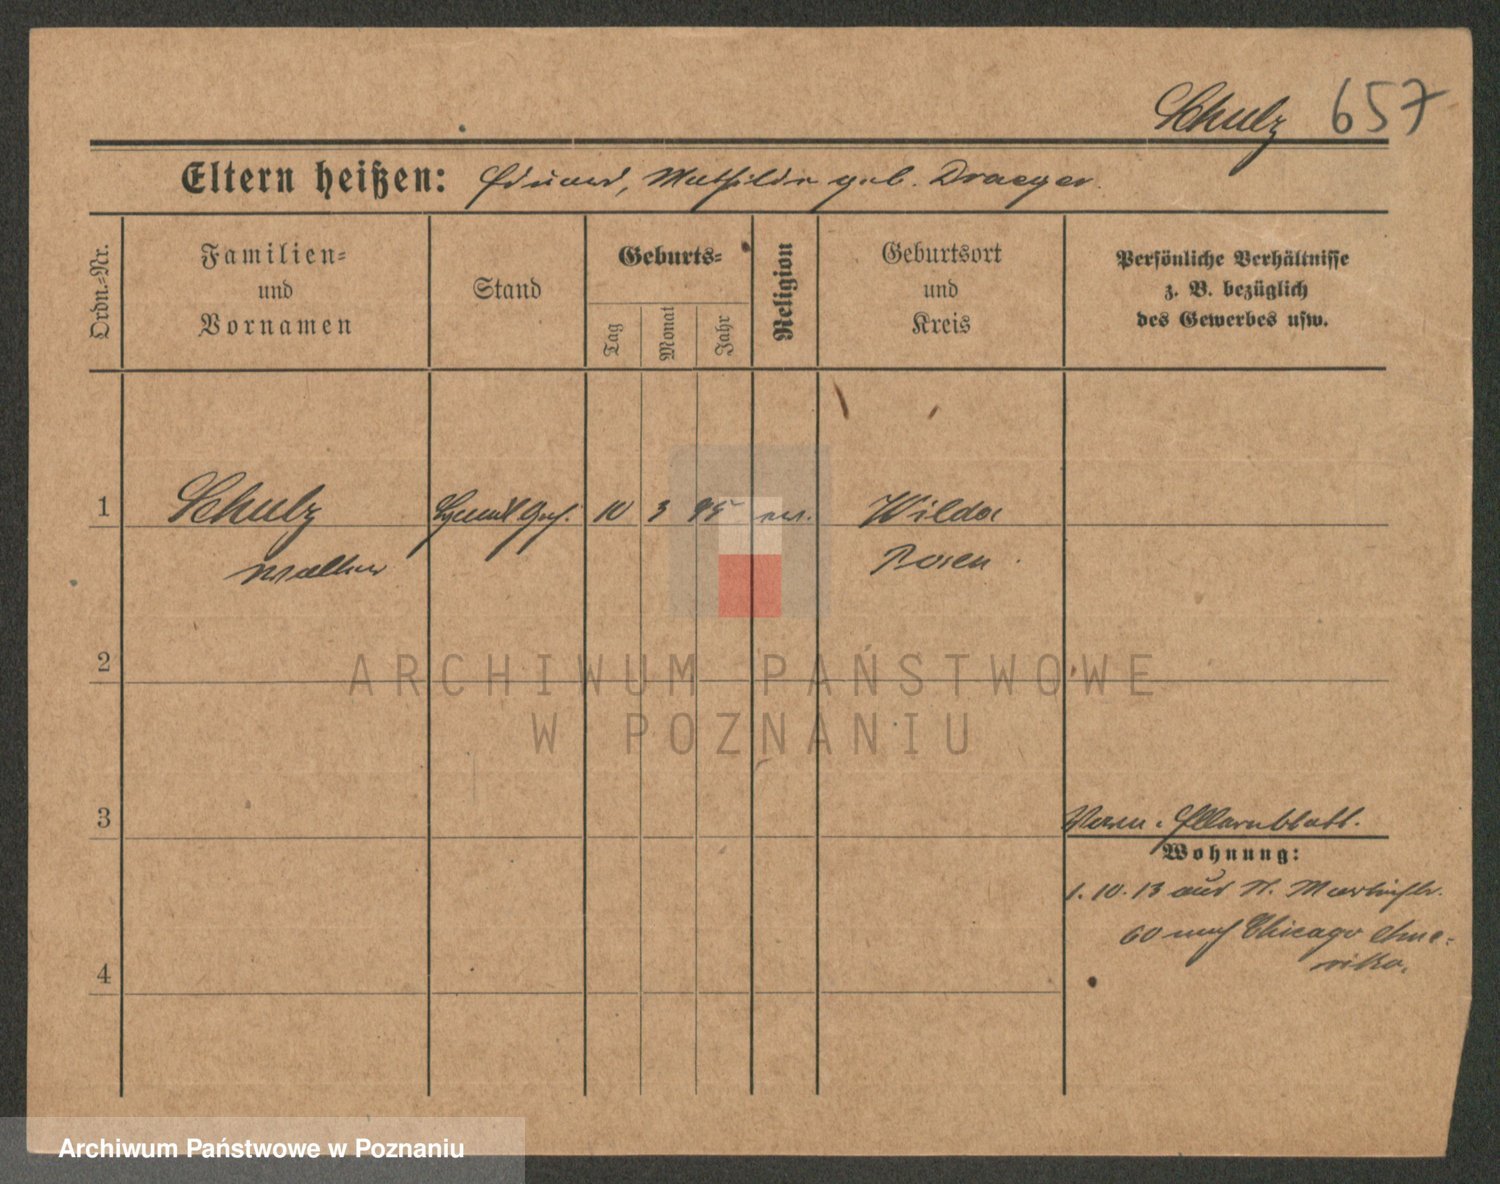 Schulz 657
Eltern heißen: Eduard, Mathilde geb. Draeger.
Ordn.-Nr.
Familien-
und
Vornamen
Stand
Geburts-
Tag
Monat
Jahr
Religion
Geburtsort
und
Kreis
Persönliche Verhältnisse
z. B. bezüglich
des Gewerbes usw.
1 Schulz 10 3 95 ev. Wilda
Walther Posen
ARCHIWUM PAŃSTWOWE
W POZNANIU
2
3
Elternblatt.
Wohnung:
1. 10. 13 aus St. Martinstr.
60 nach Chicago Ame-
rika.
4
Archiwum Państwowe w Poznaniu